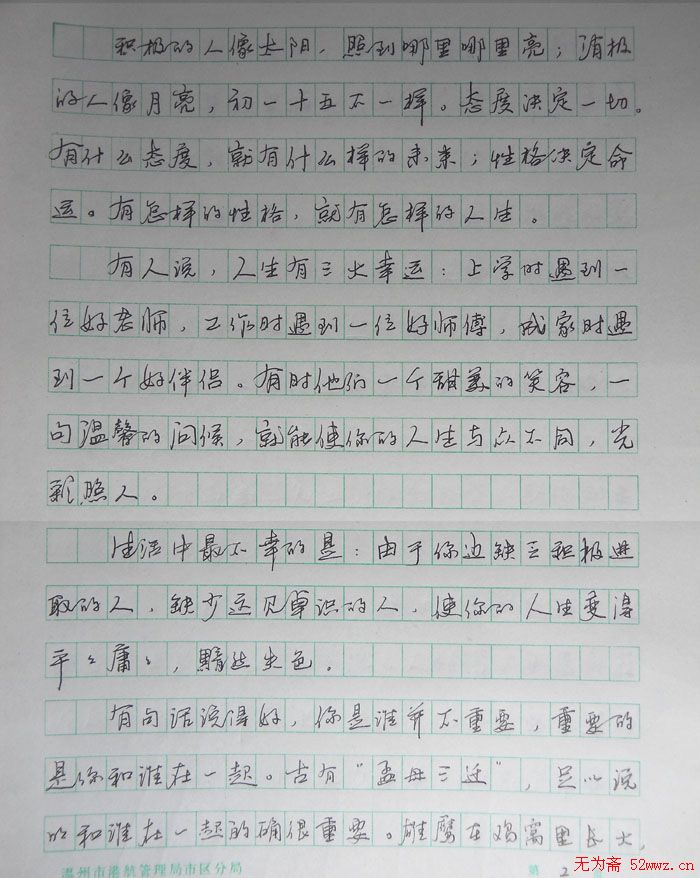 积极的人像太阳，照到哪里哪里亮；消极
的人像月亮，初一十五不一样。态度决定一切。
有什么态度，就有什么样的未来；性格决定命
运。有怎样的性格，就有怎样的人生。
有人说，人生有三大幸运：上学时遇到一
位好老师，工作时遇到一位好师傅，成家时遇
到一个好伴侣。有时他们一个甜美的笑容，一
句温馨的问候，就能使你的人生与众不同，光
彩照人。
生活中最不幸的是：由于你边缺乏积极进
取的人，缺少远见卓识的人，使你的人生变得
平々庸々，黯然失色。
有句话说得好，你是谁并不重要，重要的
是你和谁在一起。古有“孟母三迁”，足以说
以和谁在一起的确很重要。雄鹰在鸡窝里长大，
温州市港航管理局市区分局
第 2
无为斋 52wwz.cn